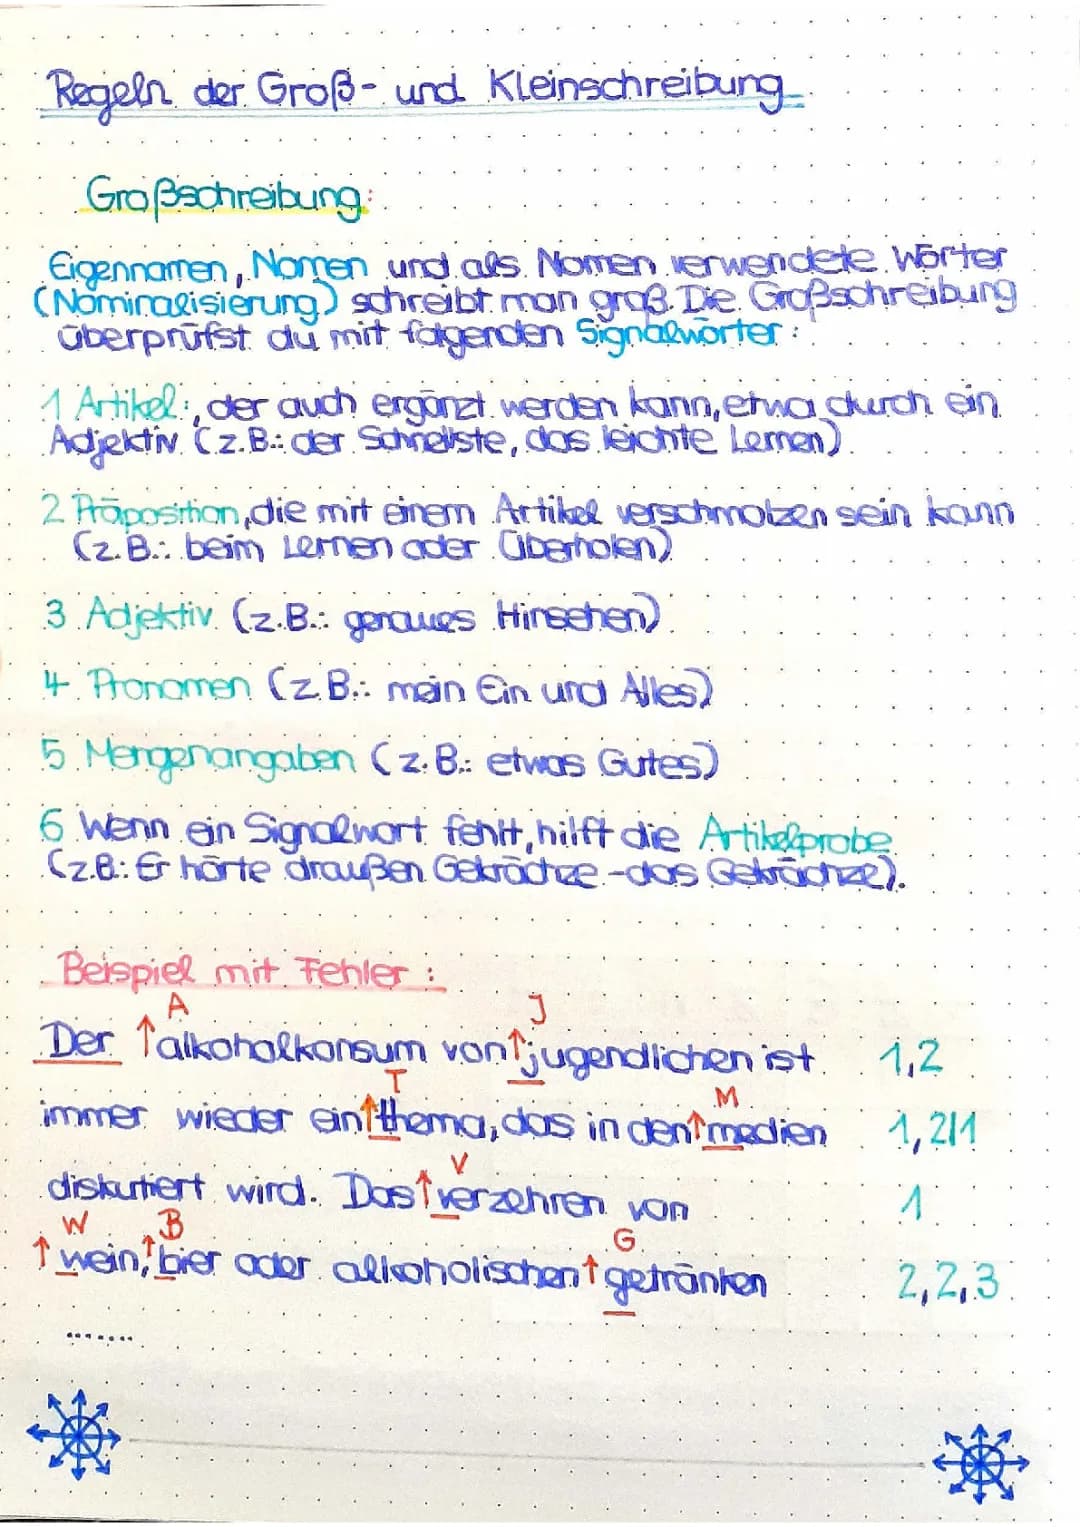 Regeln der Groß- und Kleinschreibung
Großschreibung:
Eigennamen, Nomen und als Nomen verwendete Wörter
(Nominalisierung) schreibt man groß. Die Großschreibung
überprüfst du mit folgenden Signalwörter:
1 Artikel:, der auch ergänzt werden kann, etwa durch ein
Adjektiv (z.B.: der Schnellste, das leichte Lernen)
2 Präposition, die mit einem Artikel verschmolzen sein kann
(z.B.: beim Lernen oder Überholen)
3 Adjektiv (z.B.: genaues Hinsehen)
4 Pronomen (z.B.: mein Ein und Alles)
5 Mengenangaben (z.B.: etwas Gutes)
6 Wenn ein Signalwort fehlt, hilft die Artikelprobe
(z.B: Er hörte draußen Gekrächze -das Gekrächze).
Beispiel mit Fehler:
A J
Der ↑alkoholkonsum von↑jugendlichen ist 1,2
T M
immer wieder ein↑thema, das in den↑medien 1,2/1
V
diskutiert wird. Das↑verzehren von 1
W B G
↑wein,↑bier oder alkoholischen↑getränken 2,2,3
........